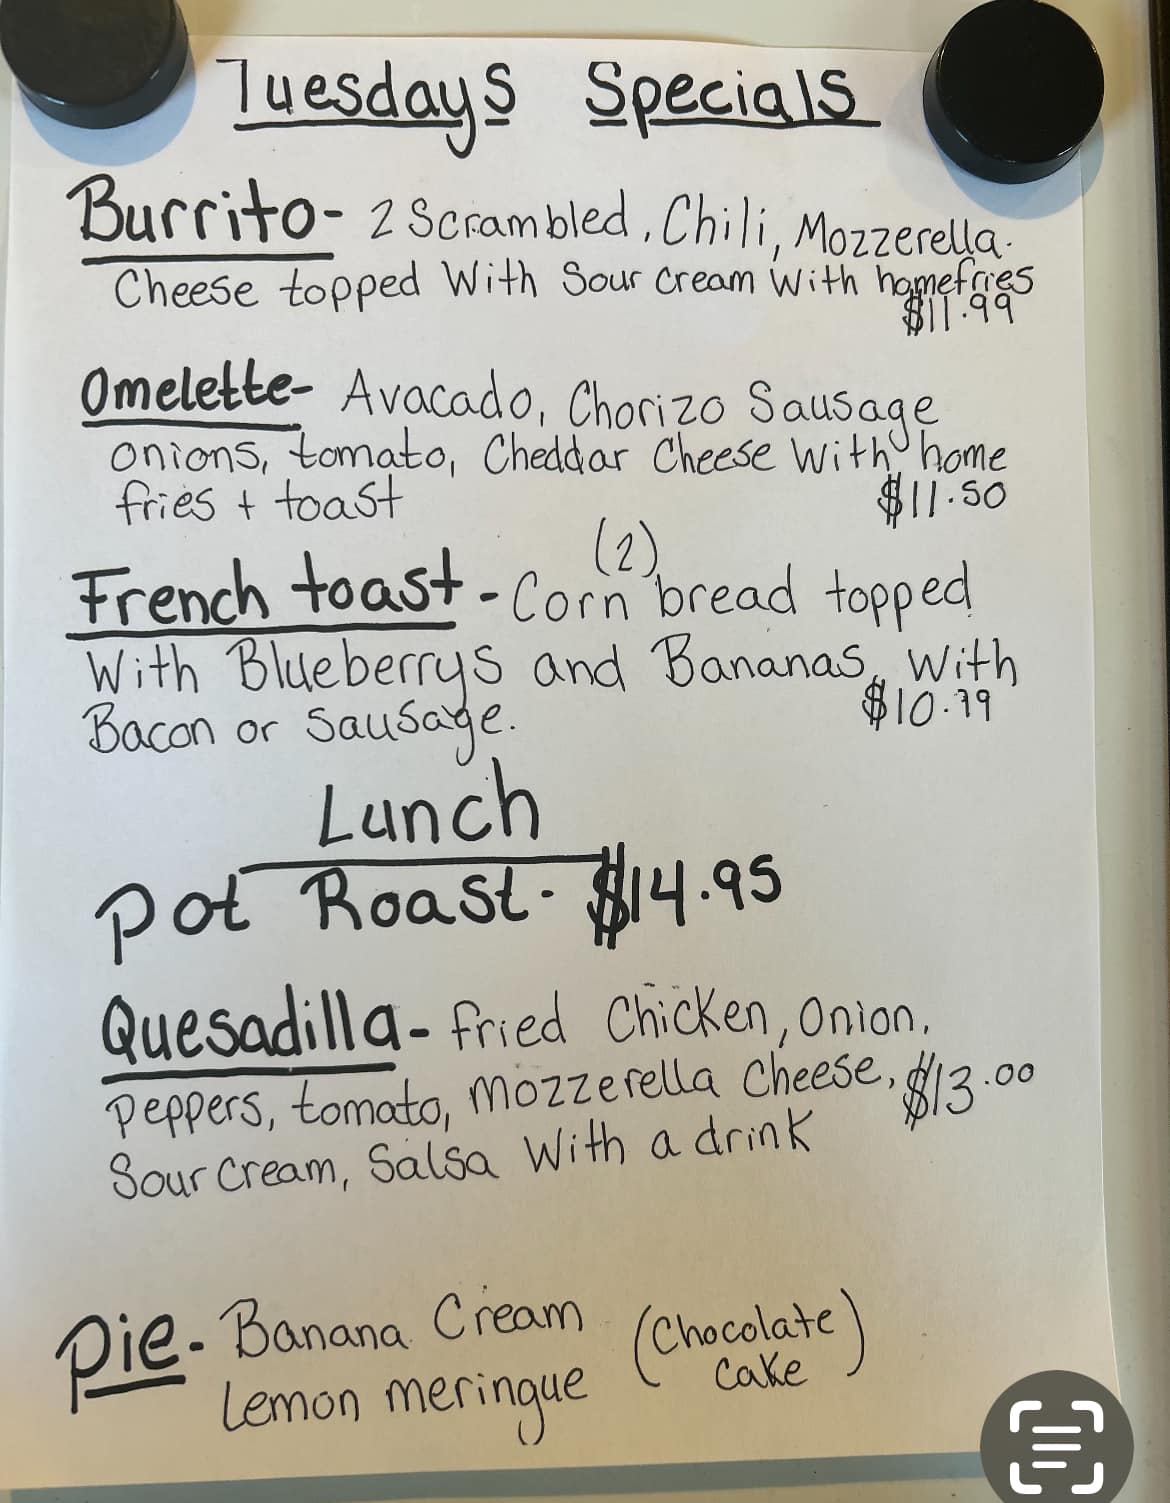 Tuesdays Specials
Burrito- 2 Scrambled, Chili, Mozzerella
Cheese topped With Sour Cream With homefries
$11.99
Omelette- Avacado, Chorizo Sausage
onions, tomato, Cheddar Cheese With home
fries + toast $11.50
(2)
French toast - Corn bread topped
With Blueberrys and Bananas, With
Bacon or Sausage. $10.99
Lunch
Pot Roast- $14.95
Quesadilla- fried Chicken, Onion,
Peppers, tomato, Mozzerella Cheese, $13.00
Sour Cream, Salsa With a drink
Pie- Banana Cream (Chocolate
Lemon meringue Cake)